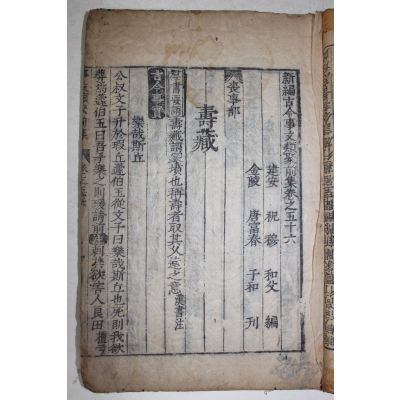 新編古今事文類聚前集卷之五十六
建安 祝穆 和父 編
金陵 唐富春 子和 刊
喪事部
壽藏
群書要語 壽藏謂冢壙也稱壽者取其久遠之意 漢書注
古今事實
樂哉斯丘
公叔文子升於瑕丘蘧伯玉從文子曰樂哉斯丘也死則我欲
葬焉蘧伯玉曰吾子樂之則瑗請前 刺其欲害人良田 檀弓